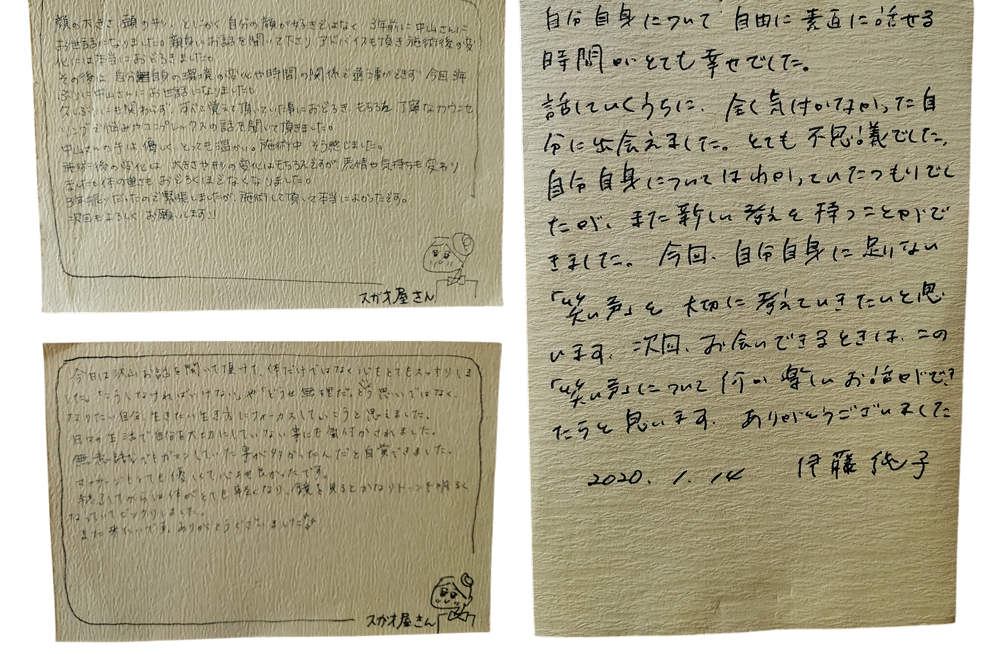 顔の大きさ、顔の歪み、とにかく自分の顔が好きではなく、3年前に中山さんに
お世話になりました。親身にお話を聞いて下さり、アドバイスも頂き施術後の変
化には本当におどろきました。
その後は、自分自身の環境の変化や時間の関係で通う事ができず、今回3年
ぶりに中山さんにお世話になりました。
久しぶりにも関わらず、すべて覚えて頂いていた事におどろき、もちろん、丁寧なカウンセ
リングで悩みやコンプレックスの話を聞いて頂きました。
中山さんの手は優しく、とっても温かい。施術中、そう感じました。
施術後の変化は、大きさや形の変化はもちろんですが、表情や気持ちも変わり
ました。体の重さも、おどろくほどなくなりました。
3年振りだったので緊張しましたが、施術して頂いて本当によかったです。
次回もよろしくお願いします!!
スガオ屋さん
今日は沢山お話を聞いて頂けて、体だけではなく心もとてもスッキリしま
した。「こうしなければいけない」や「どうせ無理だ」という思いではなく、
なりたい自分、生きたい生き方にフォーカスしていこうと思えました。
日々の生活で自分を大切にしていない事にも気付かされました。
無意識でガマンしていた事が多かったんだと自覚できました。
マッサージもとても優しくて心地良かったです。
終了してからは体がとても軽くなり、鏡を見るとかなりトーンも明るく
なっていてビックリしました。
また来たいです。ありがとうございました
スガオ屋さん
自分自身について自由に素直に話せる
時間がとても幸せでした。
話していくうちに、全く気付かなかった自
分に出会えました。とても不思議でした。
自分自身についてはわかっていたつもりでし
たが、また新しい考えを持つことがで
きました。今回、自分自身に足りない
「笑い声」を大切に考えていきたいと思
います。次回、お会いできるときは、この
「笑い声」について何か楽しいお話ができ
たらと思います。ありがとうございました
2020. 1. 14 伊藤純子